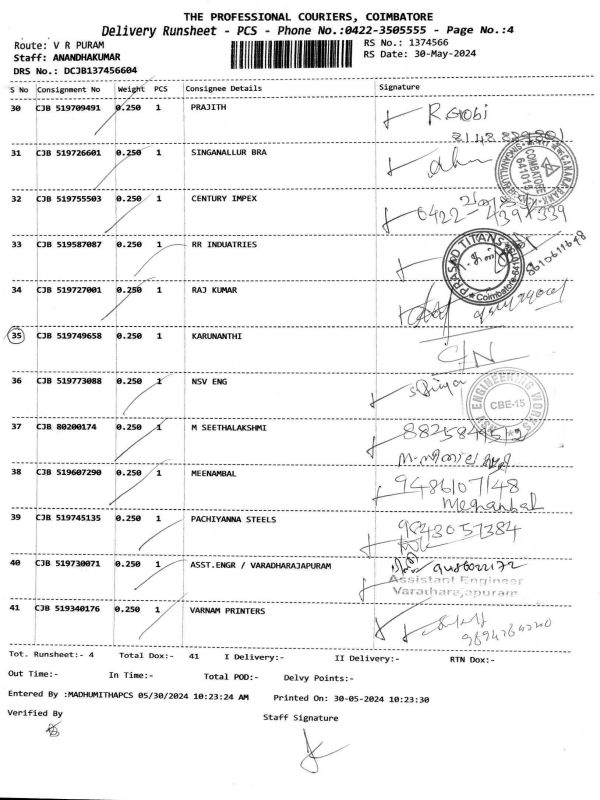 THE PROFESSIONAL COURIERS, COIMBATORE
Delivery Runsheet - PCS - Phone No.:0422-3505555 - Page No.:4
Route: V R PURAM RS No.: 1374566
Staff: ANANDHAKUMAR RS Date: 30-May-2024
DRS No.: DCJB137456604
S No Consignment No Weight PCS Consignee Details Signature
30 CJB 519709491 0.250 1 PRAJITH R Gobi
31 CJB 519726601 0.250 1 SINGANALLUR BRA
CANARA BANK COIMBATORE 641015
32 CJB 519755503 0.250 1 CENTURY IMPEX
33 CJB 519587087 0.250 1 RR INDUATRIES
PRASAD TITANS Coimbatore 8610611648
34 CJB 519727001 0.250 1 RAJ KUMAR
35 CJB 519749658 0.250 1 KARUNANTHI C/N
36 CJB 519773088 0.250 1 NSV ENG
NSV ENGINEERING WORKS CBE-15
37 CJB 80200174 0.250 1 M SEETHALAKSHMI
38 CJB 519607290 0.250 1 MEENAMBAL 9486107148
39 CJB 519745135 0.250 1 PACHIYANNA STEELS 9843057384
40 CJB 519730071 0.250 1 ASST.ENGR / VARADHARAJAPURAM
Assistant Engineer
Varadharajapuram
41 CJB 519340176 0.250 1 VARNAM PRINTERS
Tot. Runsheet:- 4 Total Dox:- 41 I Delivery:- II Delivery:- RTN Dox:-
Out Time:- In Time:- Total POD:- Delvy Points:-
Entered By :MADHUMITHAPCS 05/30/2024 10:23:24 AM Printed On: 30-05-2024 10:23:30
Verified By Staff Signature